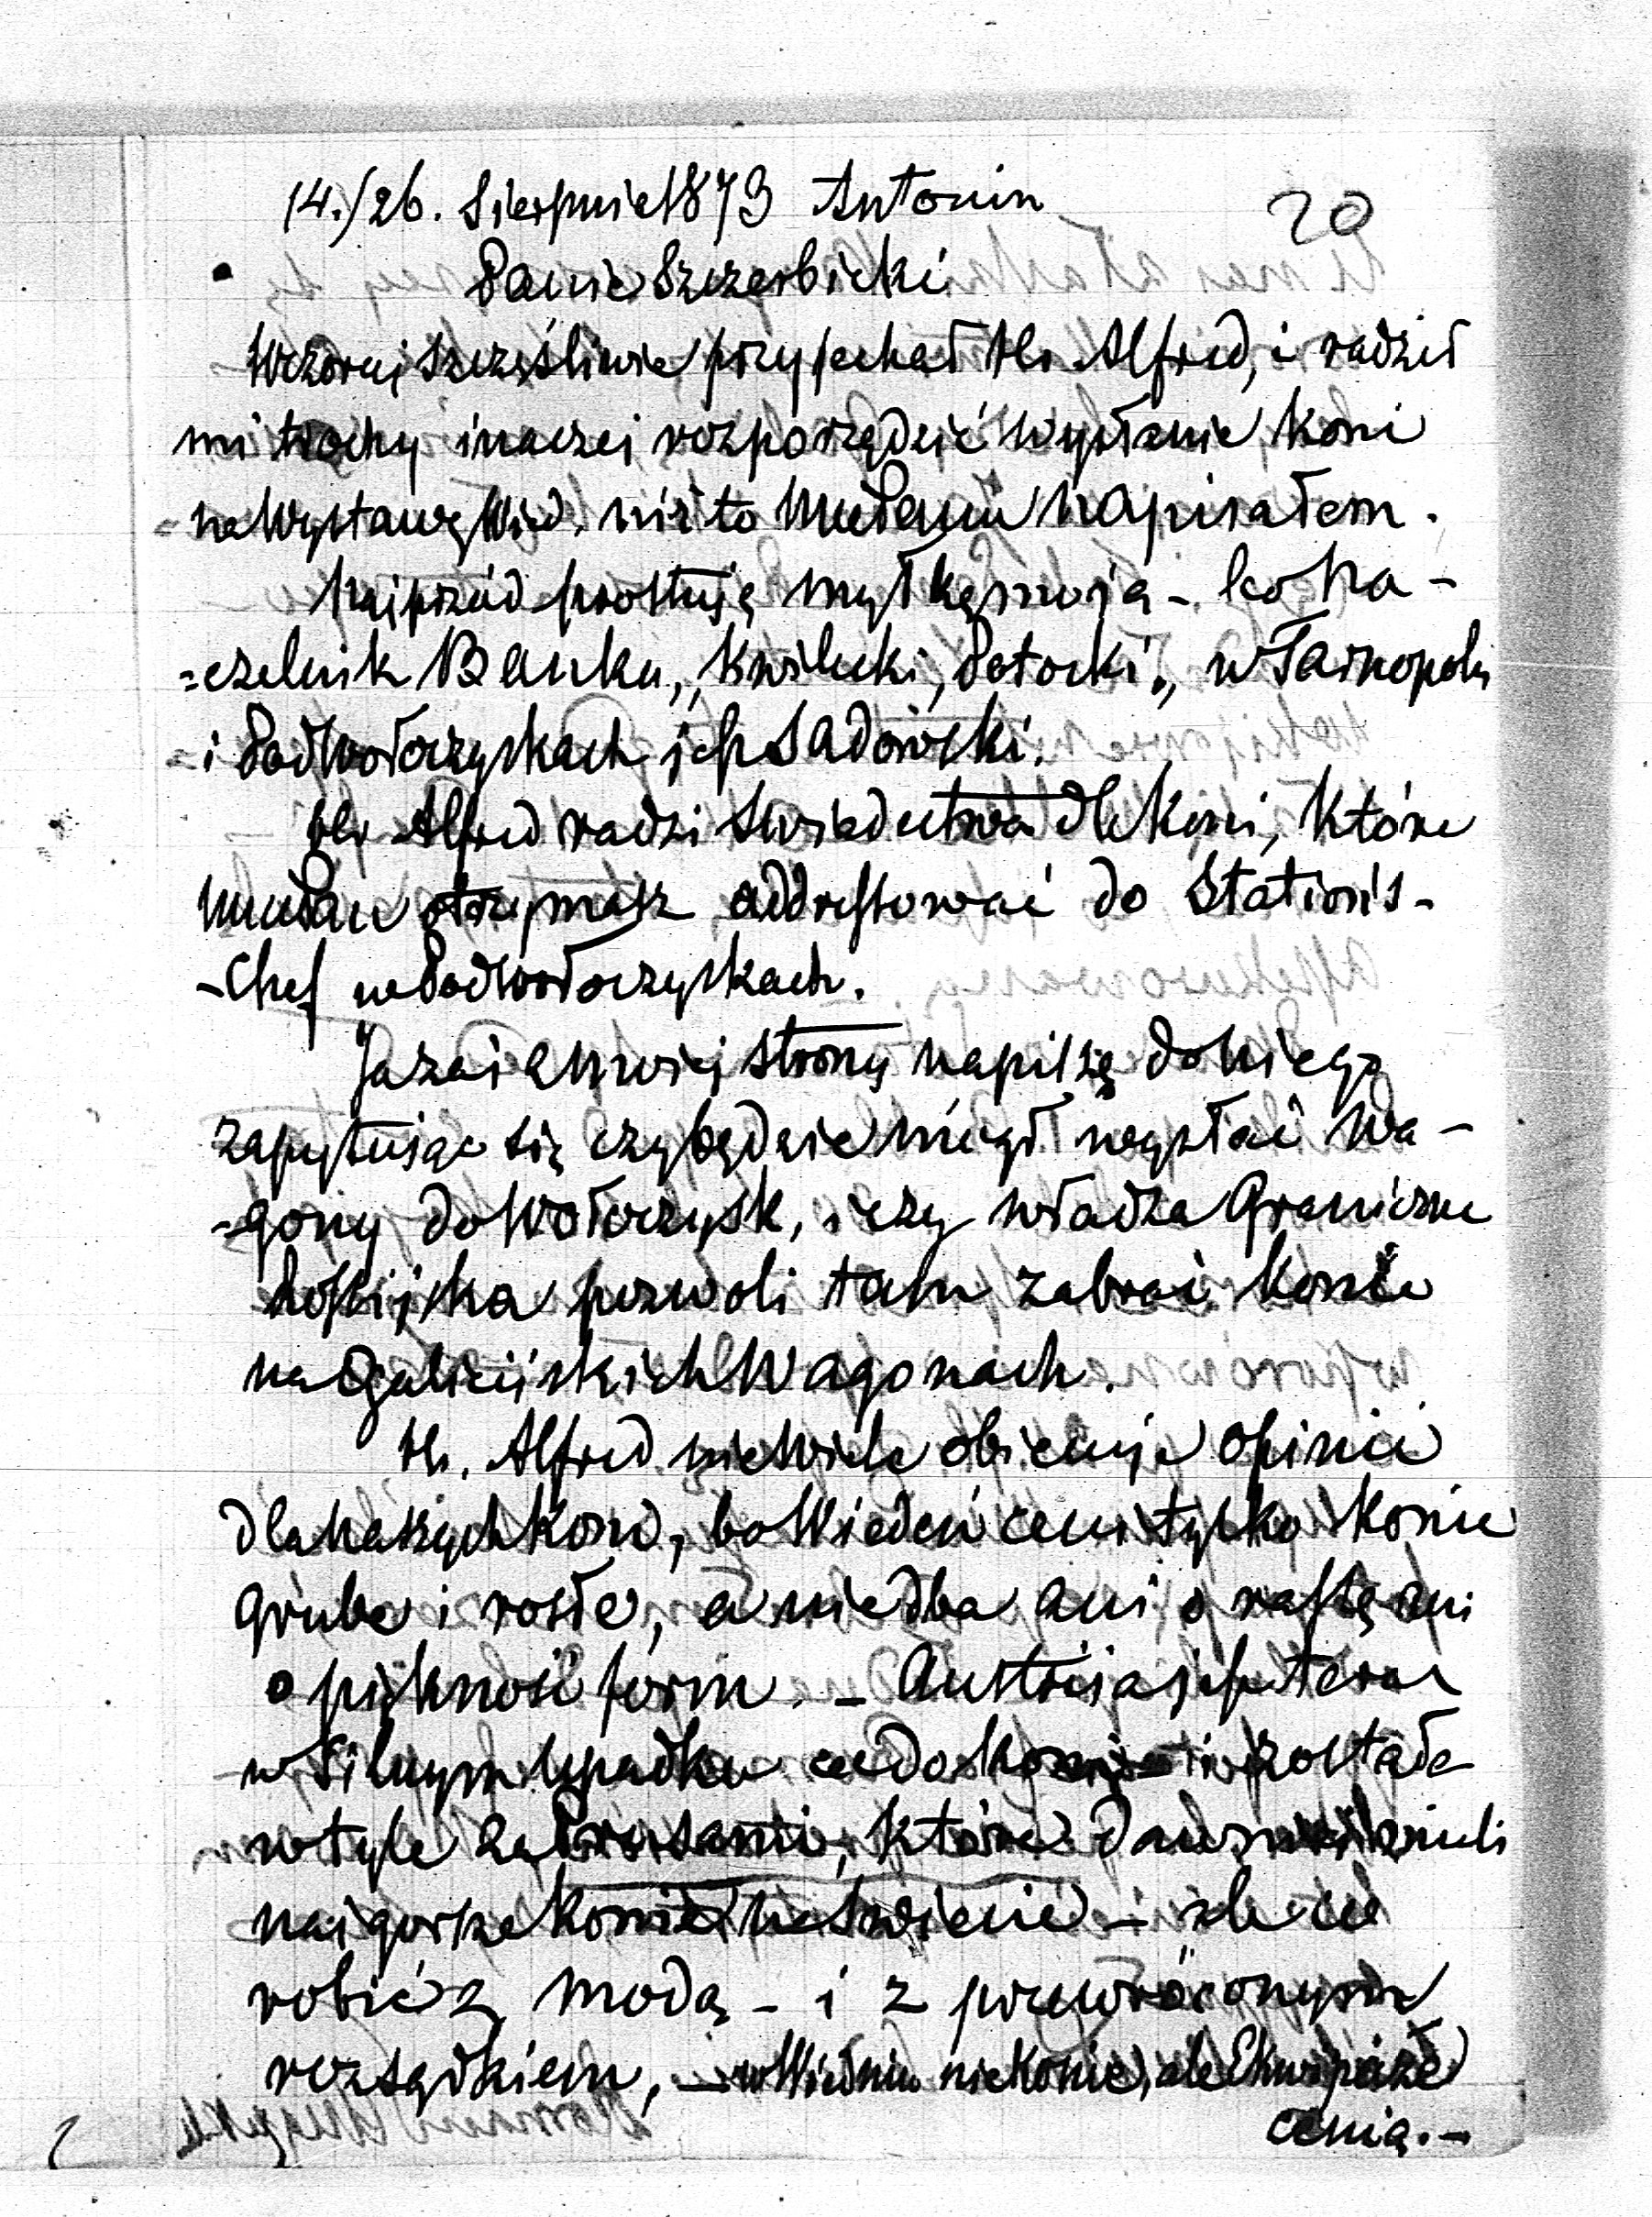 14./26. Sierpnia 1873 Antonin
20
Panie Szczerbicki
Wczoraj szczęśliwie przyjechał Hr Alfred, i radził
mi trochę inaczej rozporządzić wysłanie koni
na Wystawę Wied. niż to Panu napisałem.
Najprzód prostuję myłkę moją - bo Na-
=czelnik Banku, „Kwilecki, Potocki„ w Tarnopolu
i Podwołoczyskach jest Sadowski.
Hr Alfred radzi Swiadectwa dla koni, które
otrzymasz addressować do Stations-
-Chef w Podwołoczyskach.
Ja zaś z mojej strony napiszę do niego
zapytując się czy będzie mógł wysłać Wa-
-gony do Wołoczysk, i czy władza Graniczna
Rossijska pozwoli tam zabrać konie
na Galicijskich Wagonach.
Hr. Alfred nie wiele obiecuje opinii
dla naszych koni, bo Wiedeń ceni tylko konie
grube i rosłe, a nie dba ani o rassę ani
o piękność form. - Austrija jest teraz
w silnym upadku co do koni i została
w tyle za Prusami, które dawniej mieli
najgorsze konie na Swiecie - ale co
robić z modą - i z przewróconym
rozsądkiem, - w Wiedniu nie konie, ale Ekwipaże
cenią. -